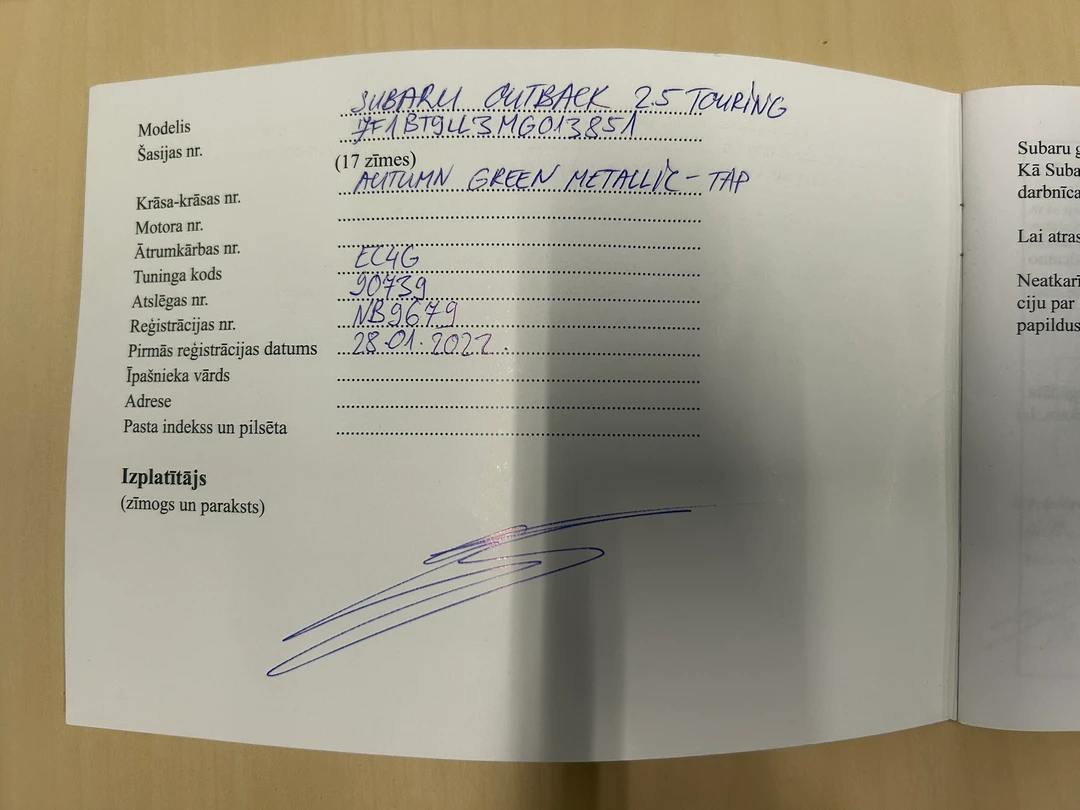 Modelis SUBARU OUTBACK 2.5 TOURING
Šasijas nr. JF1BT9LL3MG013851
(17 zīmes)
Krāsa-krāsas nr. AUTUMN GREEN METALLIC - TAP
Motora nr.
Ātrumkārbas nr.
Tuninga kods EC4G
Atslēgas nr. 90739
Reģistrācijas nr. NB9679
Pirmās reģistrācijas datums 28.01.2022.
Īpašnieka vārds
Adrese
Pasta indekss un pilsēta
Izplatītājs
(zīmogs un paraksts)
Subaru g
Kā Suba
darbnīca
Lai atras
Neatkarī
ciju par
papildus